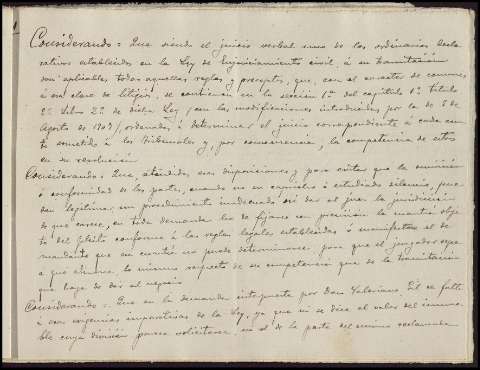 Considerando: Que siendo el juicio verbal uno de los ordinarios decla
rativos establecidos en la Ley de Enjuiciamiento civil, á su tramitación
son aplicables todas aquellas reglas y preceptos, que, con el caracter de comunes
á esa clase de litigios, se contienen en la sección 1ª del capítulo 1º título
2º Libro 2º de dicha Ley, con las modificaciones introducidas por la de 5 de
Agosto de 1907, ordenadas á determinar el juicio correspondiente á cada
to sometido á los Tribunales y, por consecuencia, la competencia de estos
en su resolución
Considerando: Que, atendidas esas disposiciones y para evitar que la omisión
ó conformidad de las partes, cuando no su capricho ó estudiado silencio, pue
dan legitimar un procedimiento inadecuado ó dar al juez la jurisdicción
de que carece, en toda demanda ha de fijarse con precisión la cuantía obje
to del pleito conforme á las reglas legales establecidas ó manifestar el de
mandante que su cuantía no puede determinarse para que el juzgador sepa
a que atenerse lo mismo respecto de su competencia que de la tramitación
que haya de dar al negocio
Considerando: Que en la demanda interpuesta por Don Valeriano Gil se falta
á esas exigencias imperativas de la Ley, ya que ni se dice el valor del inmue
ble cuya división parece solicitarse, ni el de la parte del mismo reclamada